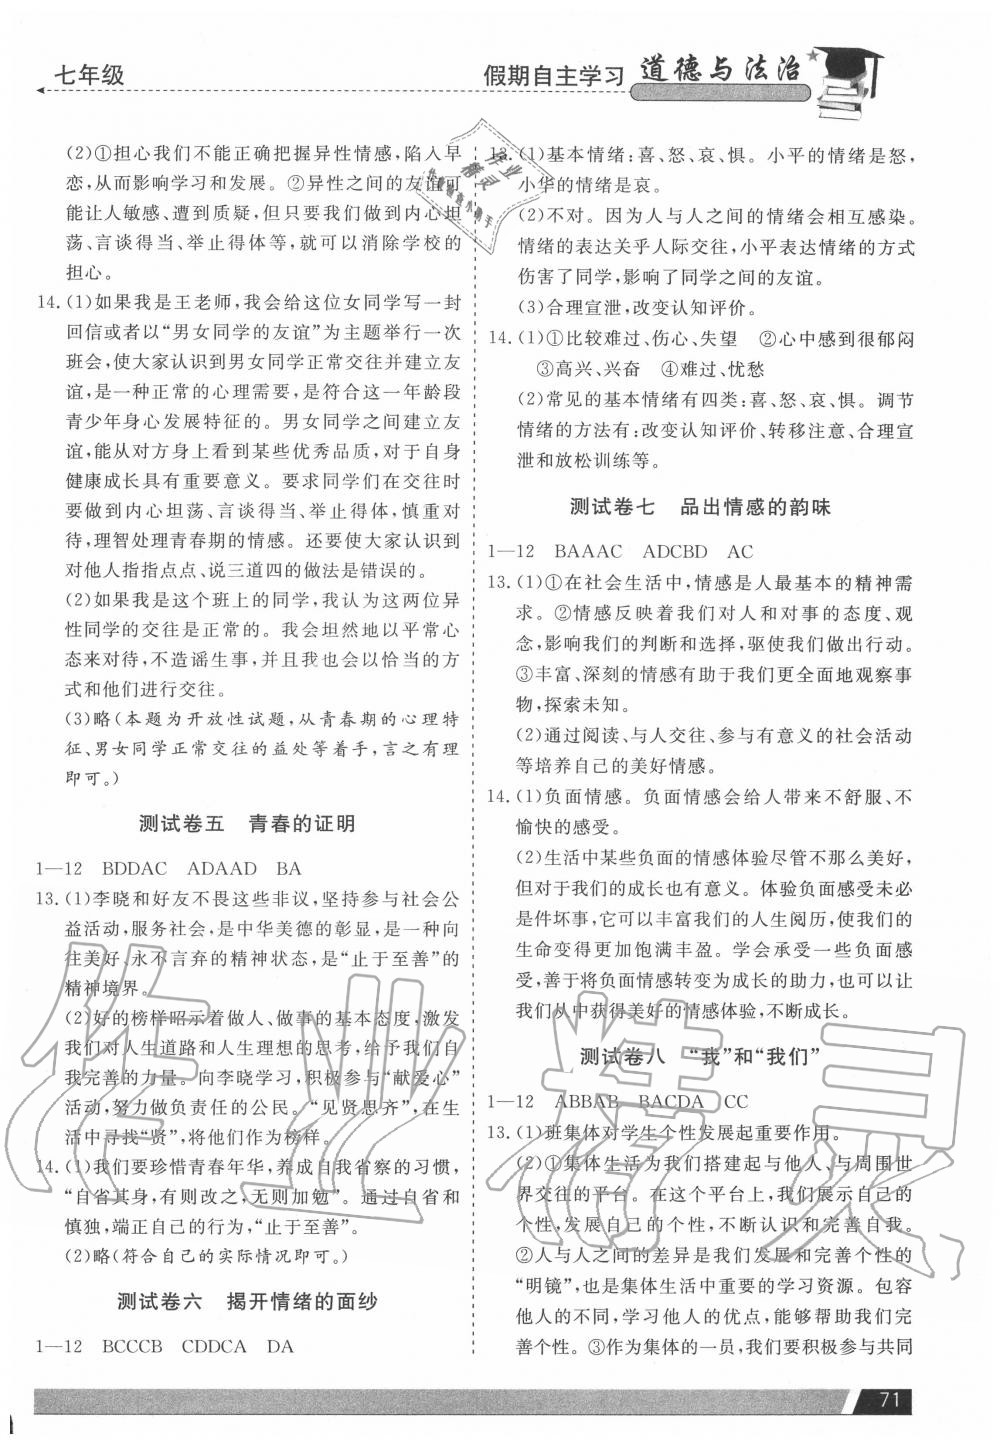 七年级
假期自主学习 道德与法治
(2)①担心我们不能正确把握异性情感,陷入早
恋,从而影响学习和发展。②异性之间的友谊可
能让人敏感、遭到质疑,但只要我们做到内心坦
荡、言谈得当、举止得体等,就可以消除学校的
担心。
14.(1)如果我是王老师,我会给这位女同学写一封
回信或者以“男女同学的友谊”为主题举行一次
班会,使大家认识到男女同学正常交往并建立友
谊,是一种正常的心理需要,是符合这一年龄段
青少年身心发展特征的。男女同学之间建立友
谊,能从对方身上看到某些优秀品质,对于自身
健康成长具有重要意义。要求同学们在交往时
要做到内心坦荡、言谈得当、举止得体,慎重对
待,理智处理青春期的情感。还要使大家认识到
对他人指指点点、说三道四的做法是错误的。
(2)如果我是这个班上的同学,我认为这两位异
性同学的交往是正常的。我会坦然地以平常心
态来对待,不造谣生事,并且我也会以恰当的方
式和他们进行交往。
(3)略(本题为开放性试题,从青春期的心理特
征、男女同学正常交往的益处等着手,言之有理
即可。)
测试卷五 青春的证明
1—12 BDDAC ADAAD BA
13.(1)李晓和好友不畏这些非议,坚持参与社会公
益活动,服务社会,是中华美德的彰显,是一种向
往美好、永不言弃的精神状态,是“止于至善”的
精神境界。
(2)好的榜样昭示着做人、做事的基本态度,激发
我们对人生道路和人生理想的思考,给予我们自
我完善的力量。向李晓学习,积极参与“献爱心”
活动,努力做负责任的公民。“见贤思齐”,在生
活中寻找“贤”,将他们作为榜样。
14.(1)我们要珍惜青春年华,养成自我省察的习惯,
“自省其身,有则改之,无则加勉”。通过自省和
慎独,端正自己的行为,“止于至善”。
(2)略(符合自己的实际情况即可。)
测试卷六 揭开情绪的面纱
1—12 BCCCB CDDCA DA
13.(1)基本情绪:喜、怒、哀、惧。小平的情绪是怒,
小华的情绪是哀。
(2)不对。因为人与人之间的情绪会相互感染。
情绪的表达关乎人际交往,小平表达情绪的方式
伤害了同学,影响了同学之间的友谊。
(3)合理宣泄,改变认知评价。
14.(1)①比较难过、伤心、失望 ②心中感到很郁闷
③高兴、兴奋 ④难过、忧愁
(2)常见的基本情绪有四类:喜、怒、哀、惧。调节
情绪的方法有:改变认知评价、转移注意、合理宣
泄和放松训练等。
测试卷七 品出情感的韵味
1—12 BAAAC ADCBD AC
13.(1)①在社会生活中,情感是人最基本的精神需
求。②情感反映着我们对人和对事的态度、观
念,影响我们的判断和选择,驱使我们做出行动。
③丰富、深刻的情感有助于我们更全面地观察事
物,探索未知。
(2)通过阅读、与人交往、参与有意义的社会活动
等培养自己的美好情感。
14.(1)负面情感。负面情感会给人带来不舒服、不
愉快的感受。
(2)生活中某些负面的情感体验尽管不那么美好,
但对于我们的成长也有意义。体验负面感受未必
是件坏事,它可以丰富我们的人生阅历,使我们的
生命变得更加饱满丰盈。学会承受一些负面感
受,善于将负面情感转变为成长的助力,也可以让
我们从中获得美好的情感体验,不断成长。
测试卷八 “我”和“我们”
1—12 ABBAB BACDA CC
13.(1)班集体对学生个性发展起重要作用。
(2)①集体生活为我们搭建起与他人、与周围世
界交往的平台。在这个平台上,我们展示自己的
个性,发展自己的个性,不断认识和完善自我。
②人与人之间的差异是我们发展和完善个性的
“明镜”,也是集体生活中重要的学习资源。包容
他人的不同,学习他人的优点,能够帮助我们
完善个性。③作为集体的一员,我们要积极参与共同
71
作业精灵
作业
精灵